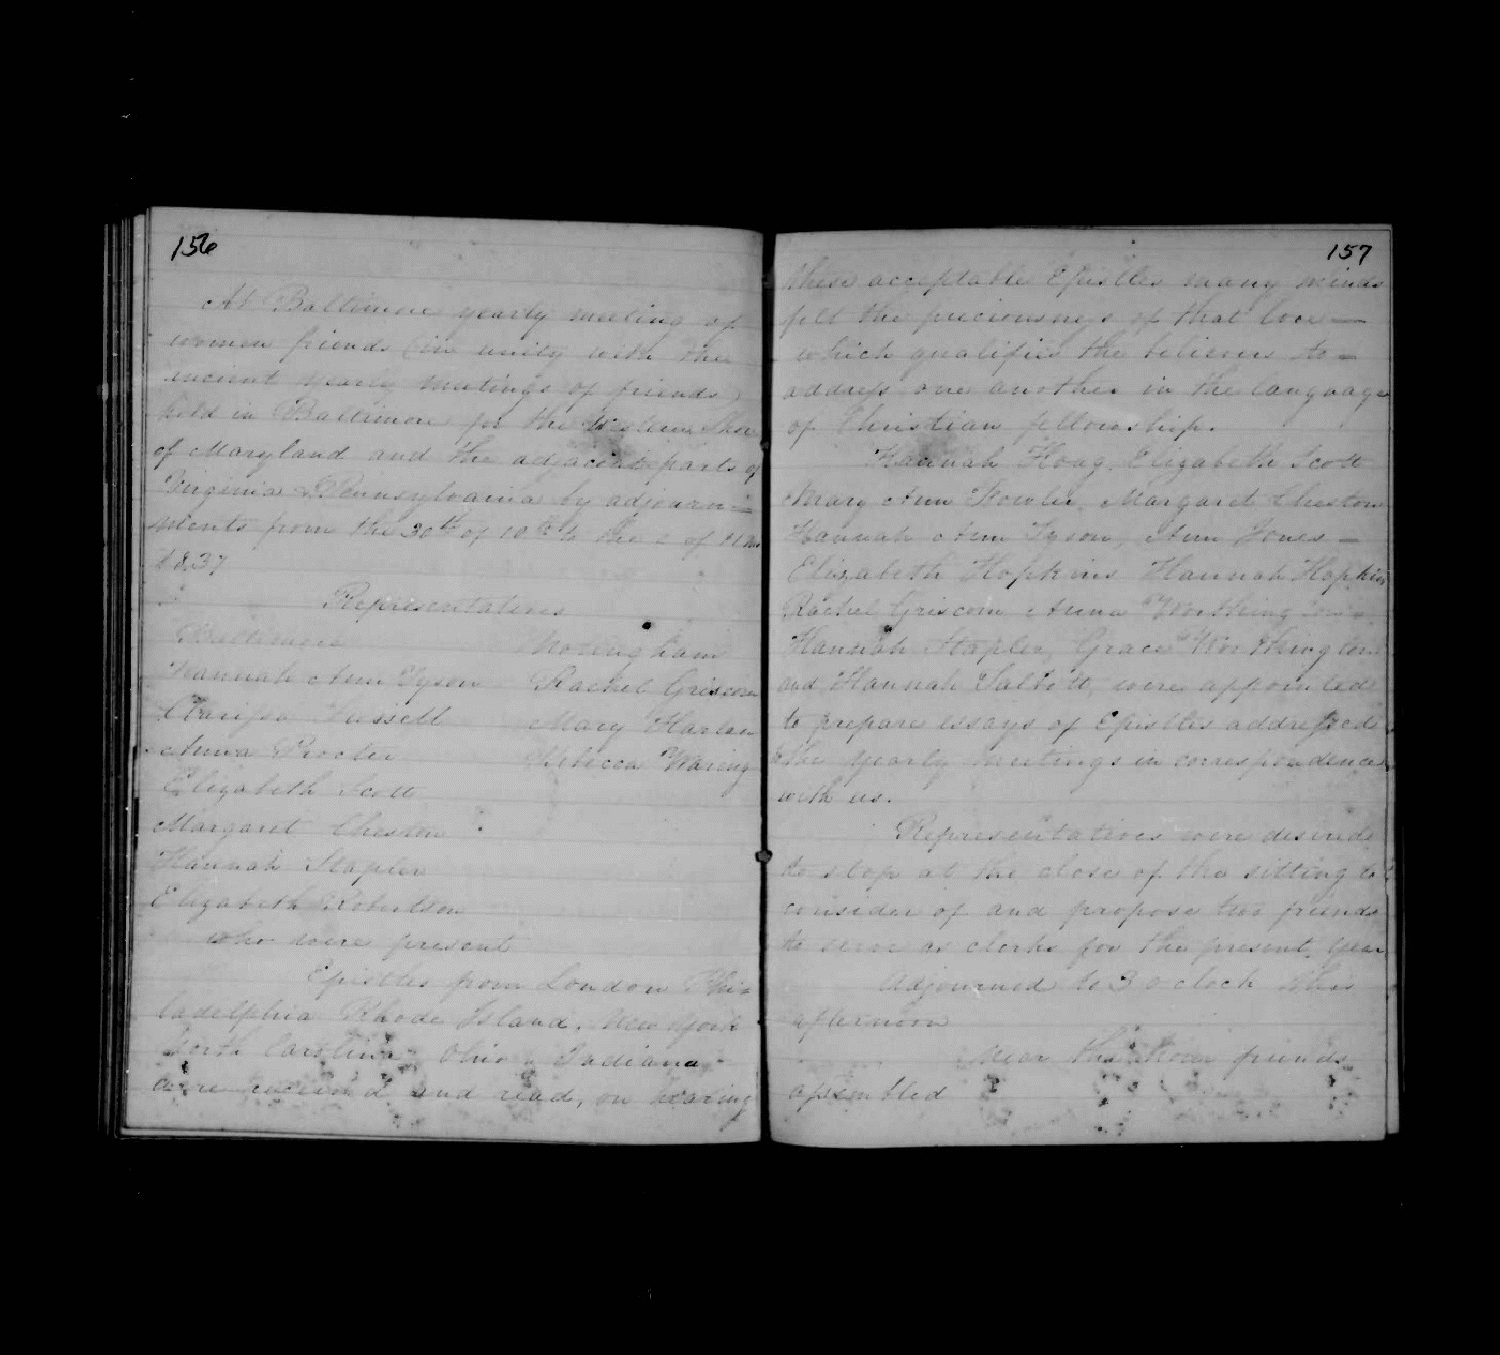 156
At Baltimore yearly meeting of
women friends (in unity with the
ancient yearly meetings of friends)
held in Baltimore for the Western Shore
of Maryland and the adjacent parts of
Virginia & Pennsylvania by adjourn=
ments from the 30th of 10th to the 2 of 11 mo
1837
Representatives
Baltimore
Hannah Ann Tyson
Clarissa Fussell
Anna Procter
Elizabeth Scott
Margaret Cheston
Hannah Stapler
Elizabeth Robertson
who were present
Nottingham
Rachel Griscom
Mary Harlan
Rebecca Waring
Epistles from London Phi=
ladelphia Rhode Island, New York
North Carolina Ohio & Indiana
were received and read, on hearing
157
these acceptable Epistles many minds
felt the preciousness of that love —
which qualifies the believers to —
address one another in the language
of Christian fellowship.
Hannah Hoag, Elizabeth Scott
Mary Ann Fowler, Margaret Cheston
Hannah Ann Tyson, Ann Jones —
Elizabeth Hopkins Hannah Hopkins
Rachel Griscom Anna Worthington
Hannah Stapler, Grace Worthington
and Hannah Talbott, were appointed
to prepare essays of Epistles addressed
to the yearly meetings in correspondence
with us.
Representatives were desired
to stop at the close of the sitting to
consider of and propose two friends
to serve as clerks for the present year
Adjourned to 3 oclock this
afternoon
Near the hour friends
assembled